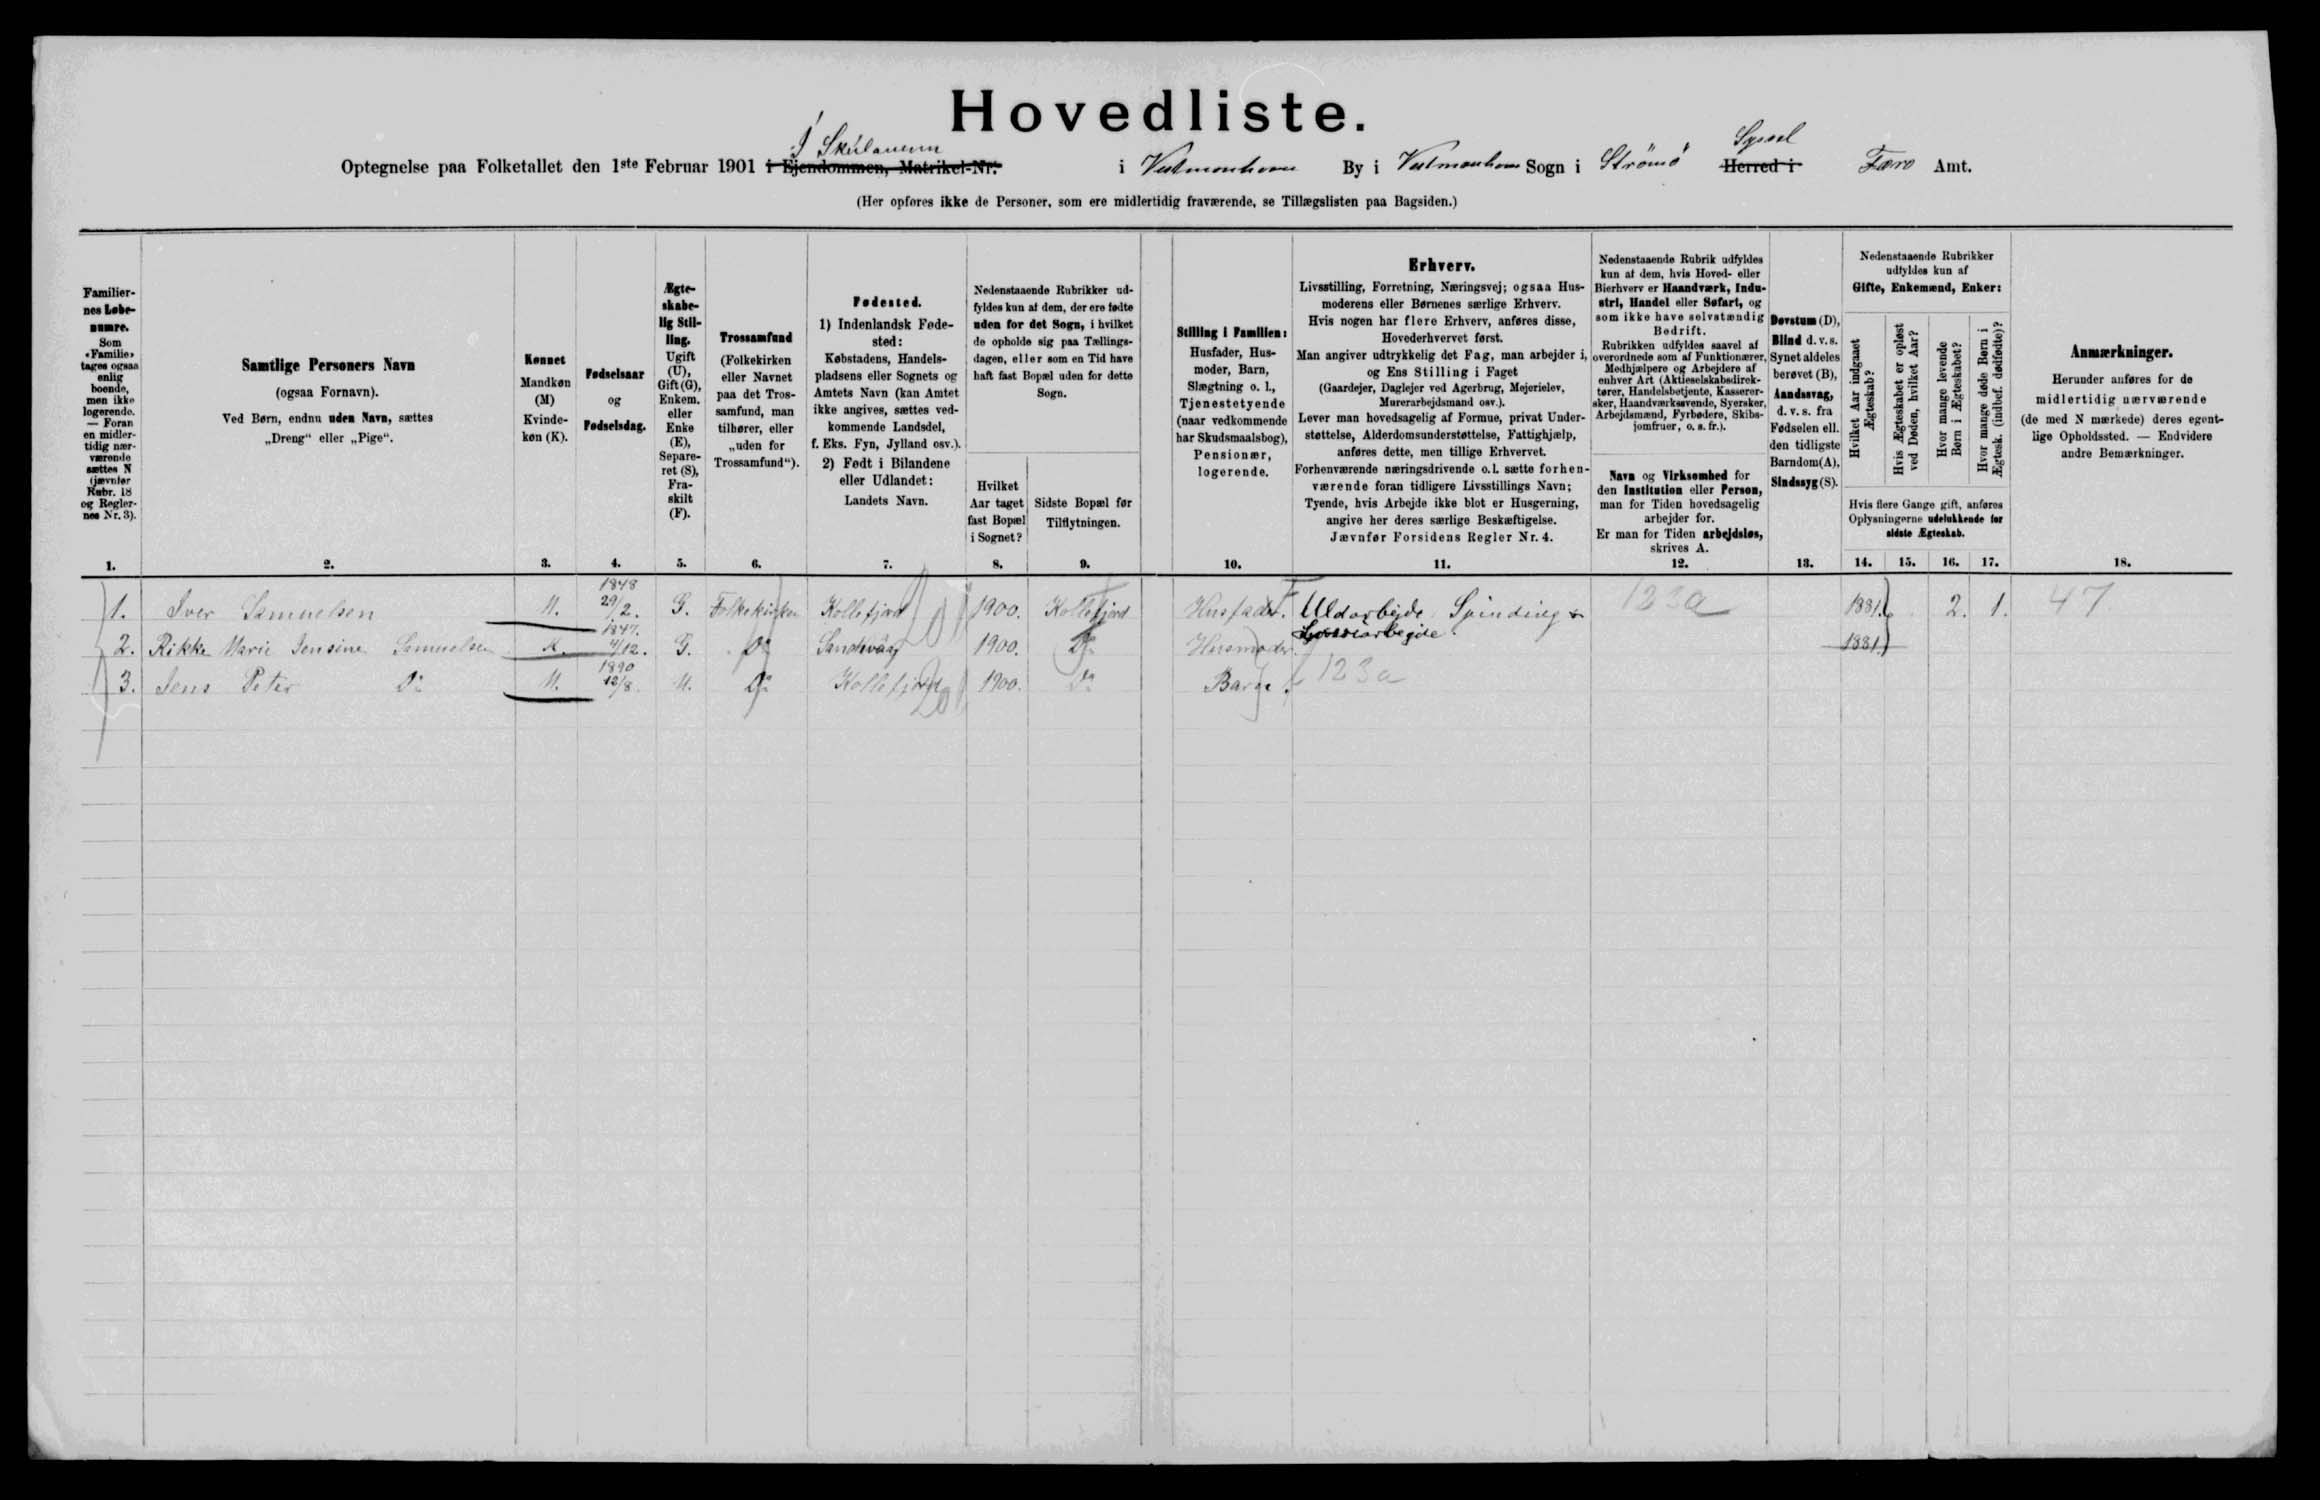 Hovedliste.
Optegnelse paa Folketallet den 1ste Februar 1901 i Ejendommen, Matrikel-Nr. i Vestmanhavn By i Vestmanhavn Sogn i Strömö Syssel Herred i Færø Amt.
(Her opføres ikke de Personer, som ere midlertidig fraværende, se Tillægslisten paa Bagsiden.)
Familier-
nes Løbe-
numre.
Som
«Familie»
tages ogsaa
enlig
boende,
men ikke
logerende.
— Foran
en midler-
tidig nær-
værende
sættes N
(jævnfør
Rubr. 18
og Regler-
nes Nr. 3).
1.
Samtlige Personers Navn
(ogsaa Fornavn).
Ved Børn, endnu uden Navn, sættes
„Dreng“ eller „Pige“.
2.
Kønnet
Mandkøn
(M)
Kvinde-
køn (K).
3.
Fødselsaar
og
Fødselsdag.
4.
Ægte-
skabe-
lig Stil-
ling.
Ugift
(U),
Gift (G),
Enkem.
eller
Enke
(E),
Separe-
ret (S),
Fra-
skilt
(F).
5.
Trossamfund
(Folkekirken
eller Navnet
paa det Tros-
samfund, man
tilhører, eller
„uden for
Trossamfund“).
6.
Fødested.
1) Indenlandsk Føde-
sted:
Købstadens, Handels-
pladsens eller Sognets og
Amtets Navn (kan Amtet
ikke angives, sættes ved-
kommende Landsdel,
f. Eks. Fyn, Jylland osv.).
2) Født i Bilandene
eller Udlandet:
Landets Navn.
7.
Nedenstaaende Rubrikker ud-
fyldes kun af dem, der ere fødte
uden for det Sogn, i hvilket
de opholde sig paa Tællings-
dagen, eller som en Tid have
haft fast Bopæl uden for dette
Sogn.
Hvilket
Aar taget
fast Bopæl
i Sognet?
8.
Sidste Bopæl før
Tilflytningen.
9.
Stilling i Familien:
Husfader, Hus-
moder, Barn,
Slægtning o. l.,
Tjenestetyende
(naar vedkommende
har Skudsmaalsbog),
Pensionær,
logerende.
10.
Erhverv.
Livsstilling, Forretning, Næringsvej; ogsaa Hus-
moderens eller Børnenes særlige Erhverv.
Hvis nogen har flere Erhverv, anføres disse,
Hovederhvervet først.
Man angiver udtrykkelig det Fag, man arbejder i,
og Ens Stilling i Faget
(Gaardejer, Daglejer ved Agerbrug, Mejerielev,
Murerarbejdsmand osv.).
Lever man hovedsagelig af Formue, privat Under-
støttelse, Alderdomsunderstøttelse, Fattighjælp,
anføres dette, men tillige Erhvervet.
Forhenværende næringsdrivende o.l. sætte forhen-
værende foran tidligere Livsstillings Navn;
Tyende, hvis Arbejde ikke blot er Husgerning,
angive her deres særlige Beskæftigelse.
Jævnfør Forsidens Regler Nr. 4.
11.
Nedenstaaende Rubrik udfyldes
kun af dem, hvis Hoved- eller
Bierhverv er Haandværk, Indu-
stri, Handel eller Søfart, og
som ikke have selvstændig
Bedrift.
Rubrikken udfyldes saavel af
overordnede som af Funktionærer,
Medhjælpere og Arbejdere af
enhver Art (Aktieselskabsdirek-
tører, Handelsbetjente, Kasserer-
sker, Haandværkssvende, Syersker,
Arbejdsmænd, Fyrbødere, Skibs-
jomfruer, o. s. fr.).
Navn og Virksomhed for
den Institution eller Person,
man for Tiden hovedsagelig
arbejder for.
Er man for Tiden arbejdsløs,
skrives A.
12.
Døvstum (D),
Blind d. v. s.
Synet aldeles
berøvet (B),
Aandssvag,
d. v. s. fra
Fødselen ell.
den tidligste
Barndom (A),
Sindssyg (S).
13.
Nedenstaaende Rubrikker
udfyldes kun af
Gifte, Enkemænd, Enker:
Hvilket Aar indgaaet
Ægteskab?
Hvis Ægteskabet er opløst
ved Døden, hvilket Aar?
Hvor mange levende
Børn i Ægteskabet?
Hvor mange døde Børn i
Ægtesk. (indbef. dødfødte)?
Hvis flere Gange gift, anføres
Oplysningerne udelukkende for
sidste Ægteskab.
14. 15. 16. 17.
Anmærkninger.
Herunder anføres for de
midlertidig nærværende
(de med N mærkede) deres egent-
lige Opholdssted. — Endvidere
andre Bemærkninger.
18.
1. Iver Samuelsen M. 1848 29/2. G. Folkekirken Kollefjord 1900. Kollefjord Husfader. Uldarbejde Spinding 123a 1881. 2. 1. 47
2. Rikke Marie Jensine Samuelsen K. 1847. 4/12. G. Do Sandevåg 1900. Do Husmoder 1881.
3. Jens Peter Do M. 1890 12/8. U. Do Kollefjord 1900. Do Barn. 123a